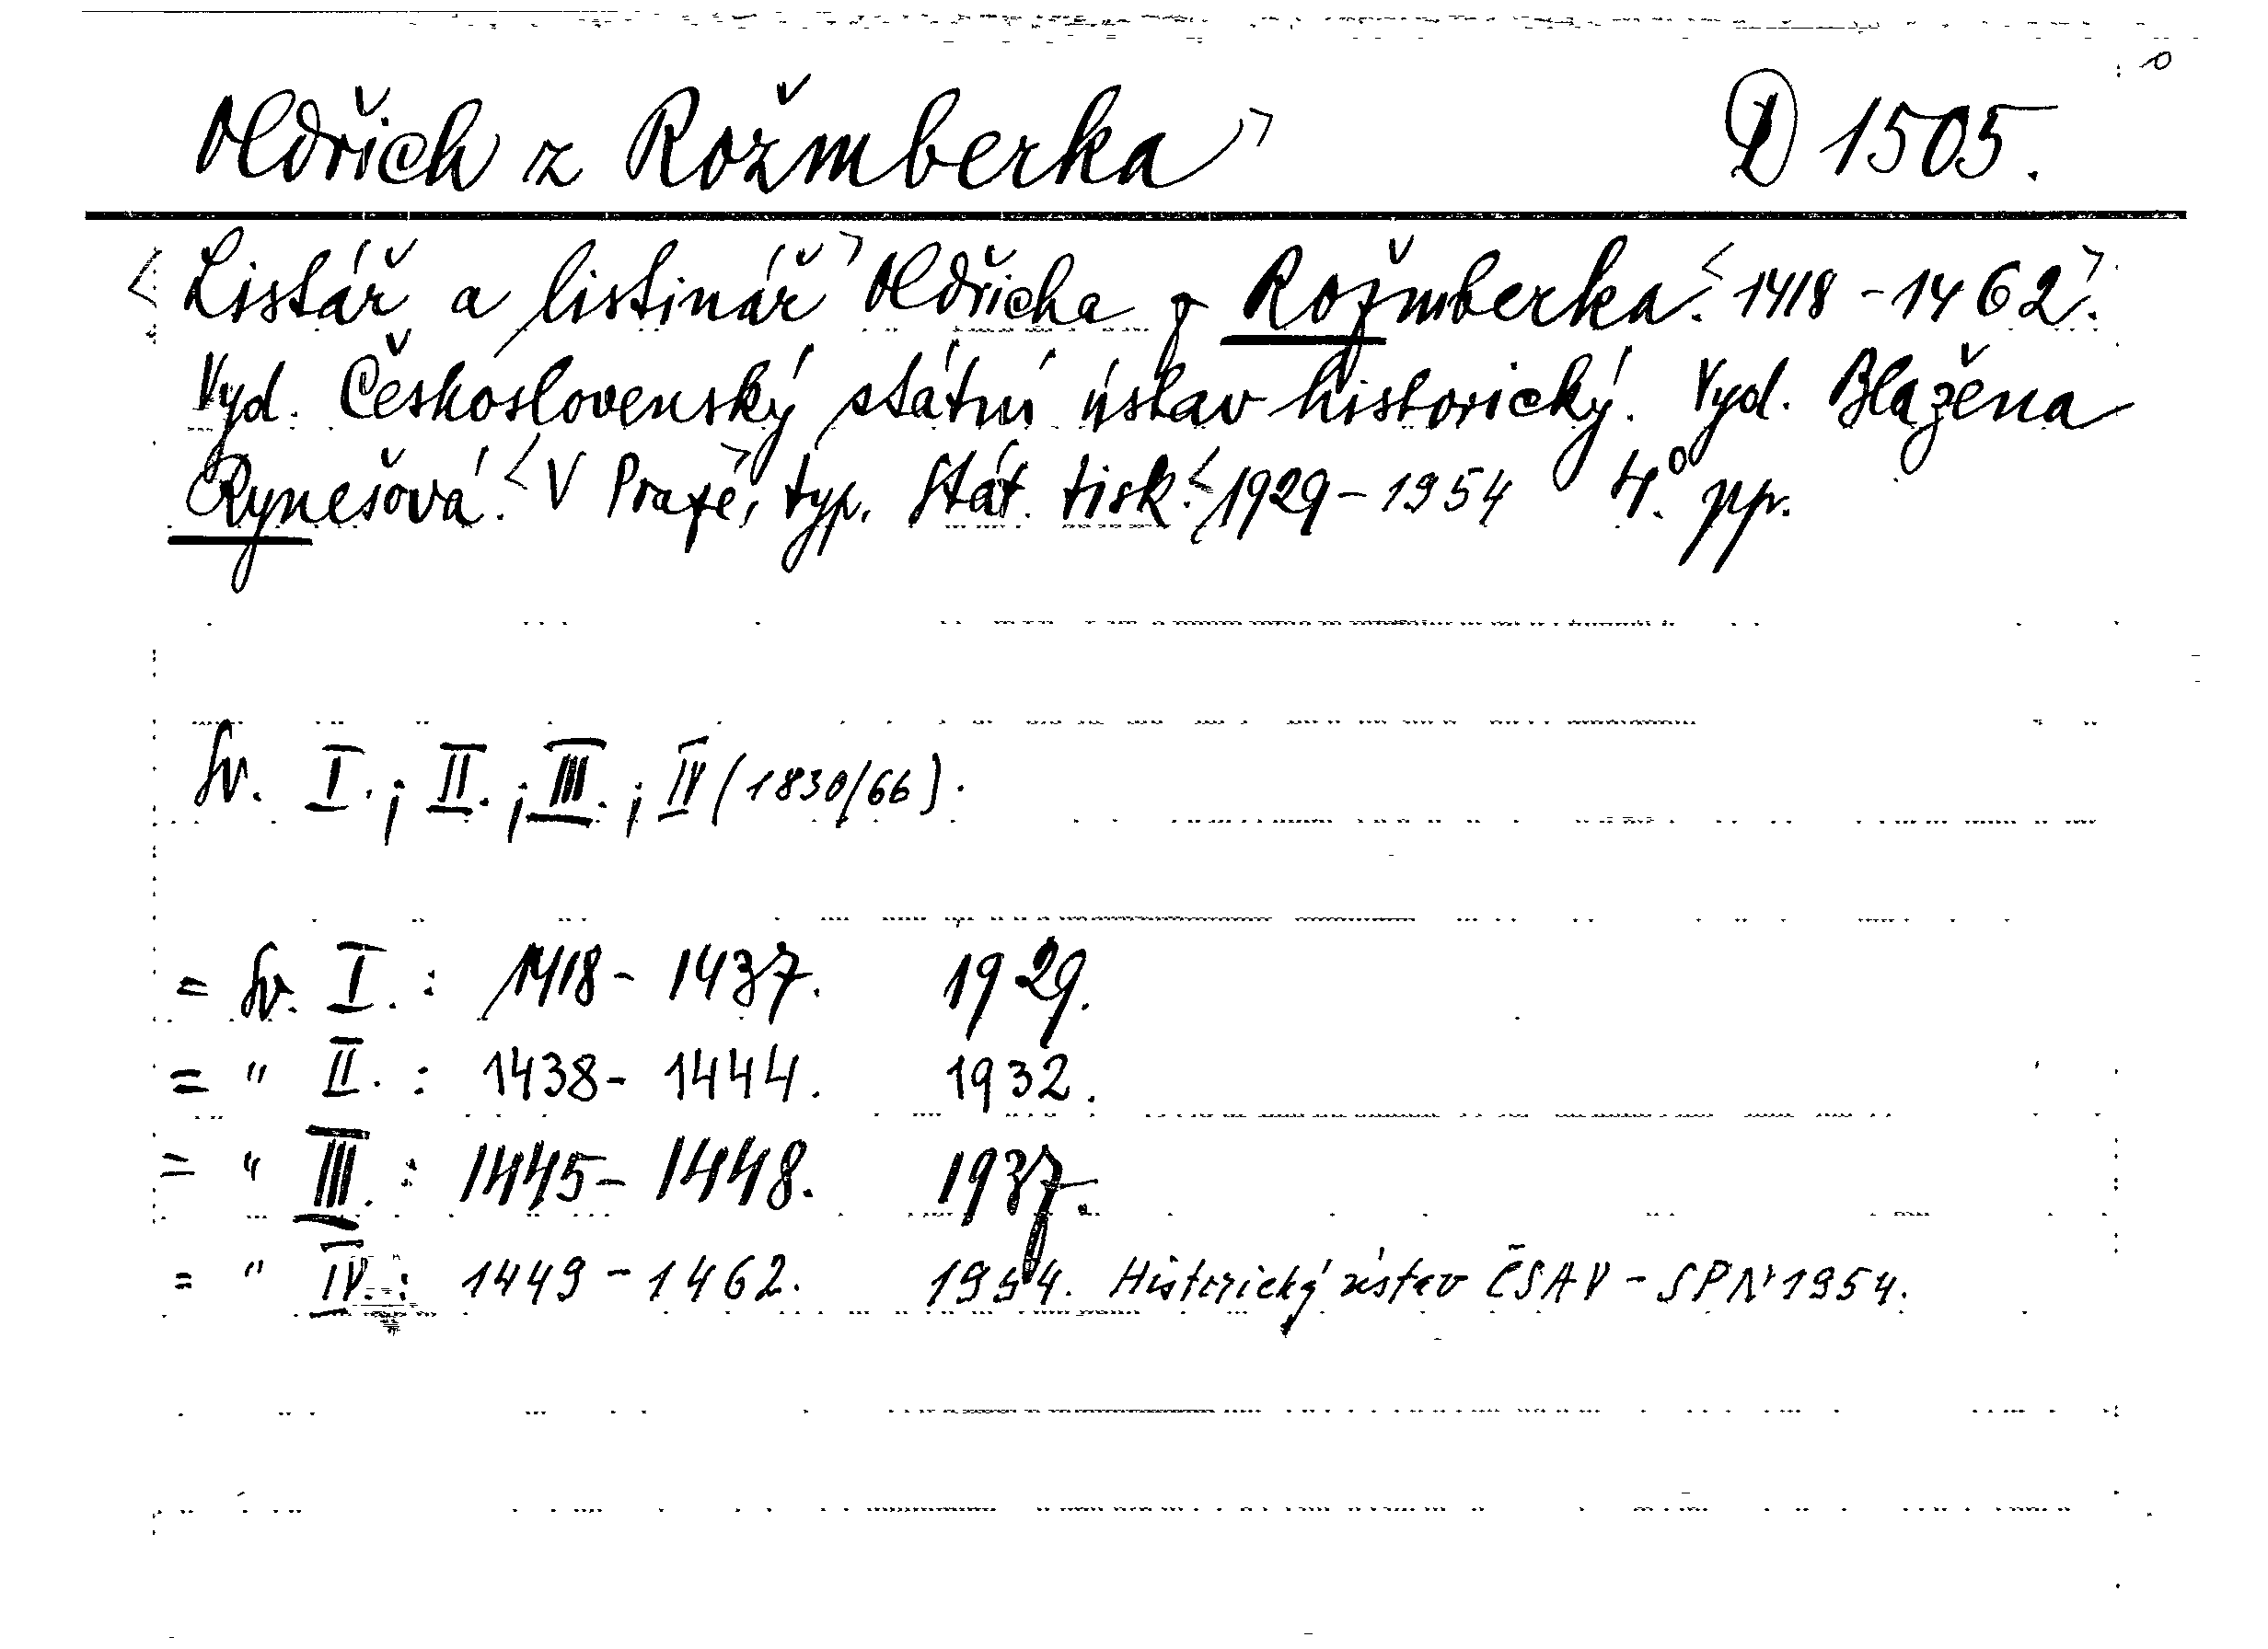 Oldřich z Rožmberka> D 1505.
<Listář a listinář> Oldřicha z Rožmberka.<1418-1462>.
Vyd. Československý státní ústav historický. Vyd. Blažena
Rynešová.<V Praze>, typ. Stát. tisk.<1929-1954 4.° pp.
Sv. I.; II.; III.; IV (1830/66).
= Sv. I. : 1418- 1437. 1929.
= " II. : 1438- 1444. 1932.
= " III. : 1445- 1448. 1937.
= " IV. : 1449-1462. 1954. Historický ústav ČSAV - SPN 1954.